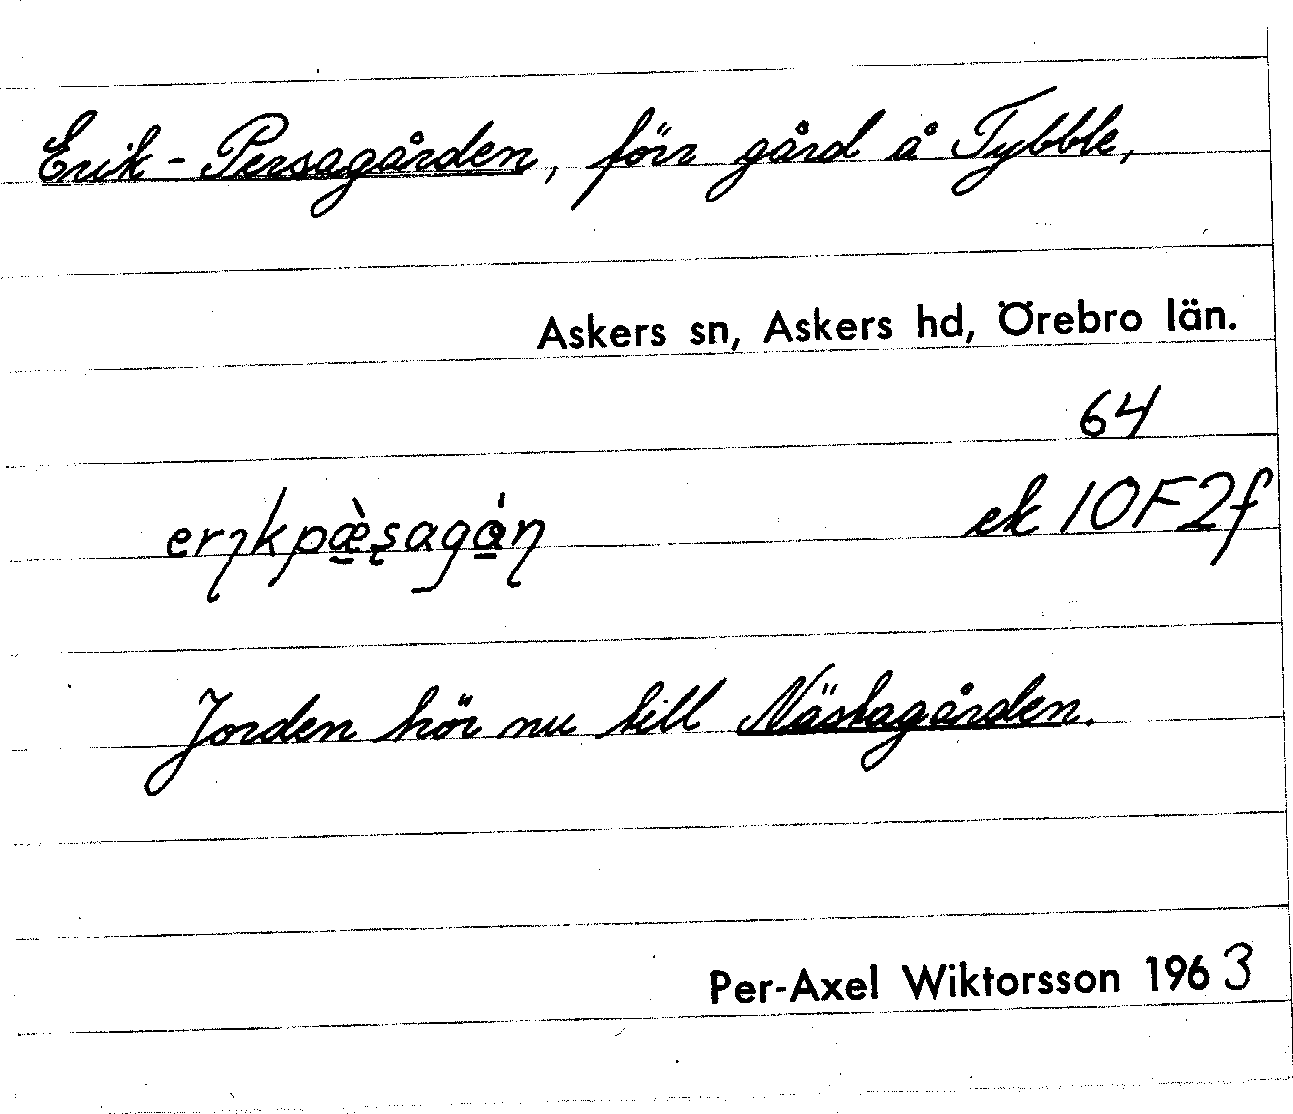 Erik-Persagården, förr gård å Tybble,
Askers sn, Askers hd, Örebro län.
64
erıkpæ̀şagán ek 10F2f
Jorden hör nu till Nästagården.
Per-Axel Wiktorsson 1963